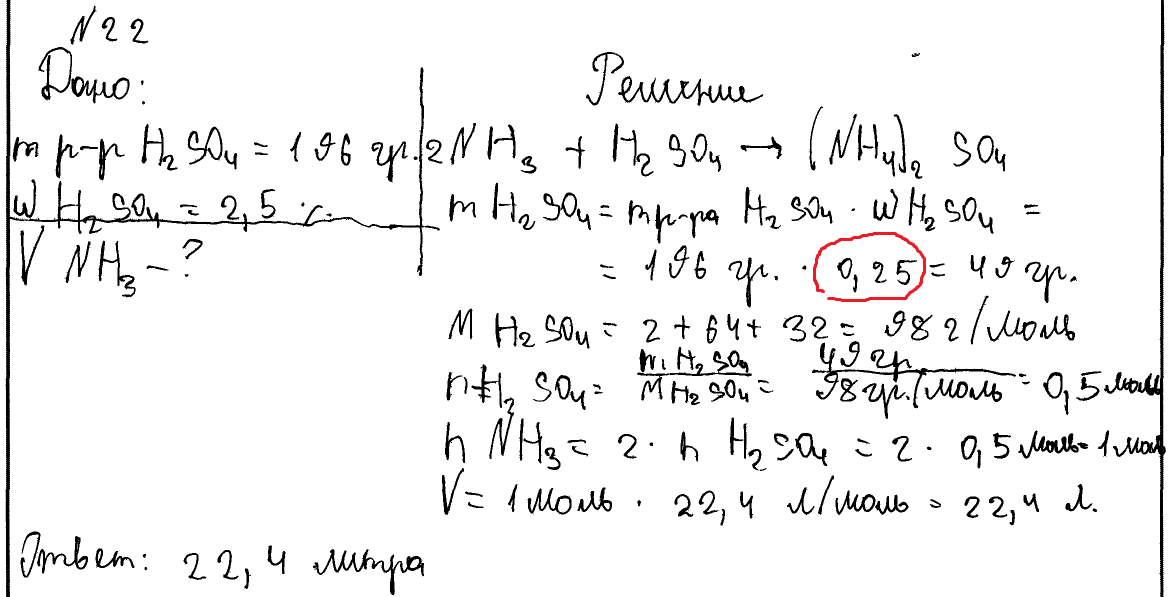 N22
Дано:
Решение
m р-р H₂SO₄ = 196 гр.
2NH₃ + H₂SO₄ → (NH₄)₂ SO₄
w H₂SO₄ = 2,5 %
m H₂SO₄ = m р-ра H₂SO₄ · w H₂SO₄ =
V NH₃ - ?
= 196 гр. · 0,25 = 49 гр.
M H₂SO₄ = 2 + 64 + 32 = 98 г/моль
n H₂SO₄ = m H₂SO₄ / M H₂SO₄ = 49 гр / 98 гр./моль = 0,5 моль
n NH₃ = 2 · n H₂SO₄ = 2 · 0,5 моль = 1 моль
V = 1 моль · 22,4 л/моль = 22,4 л.
Ответ: 22,4 литра